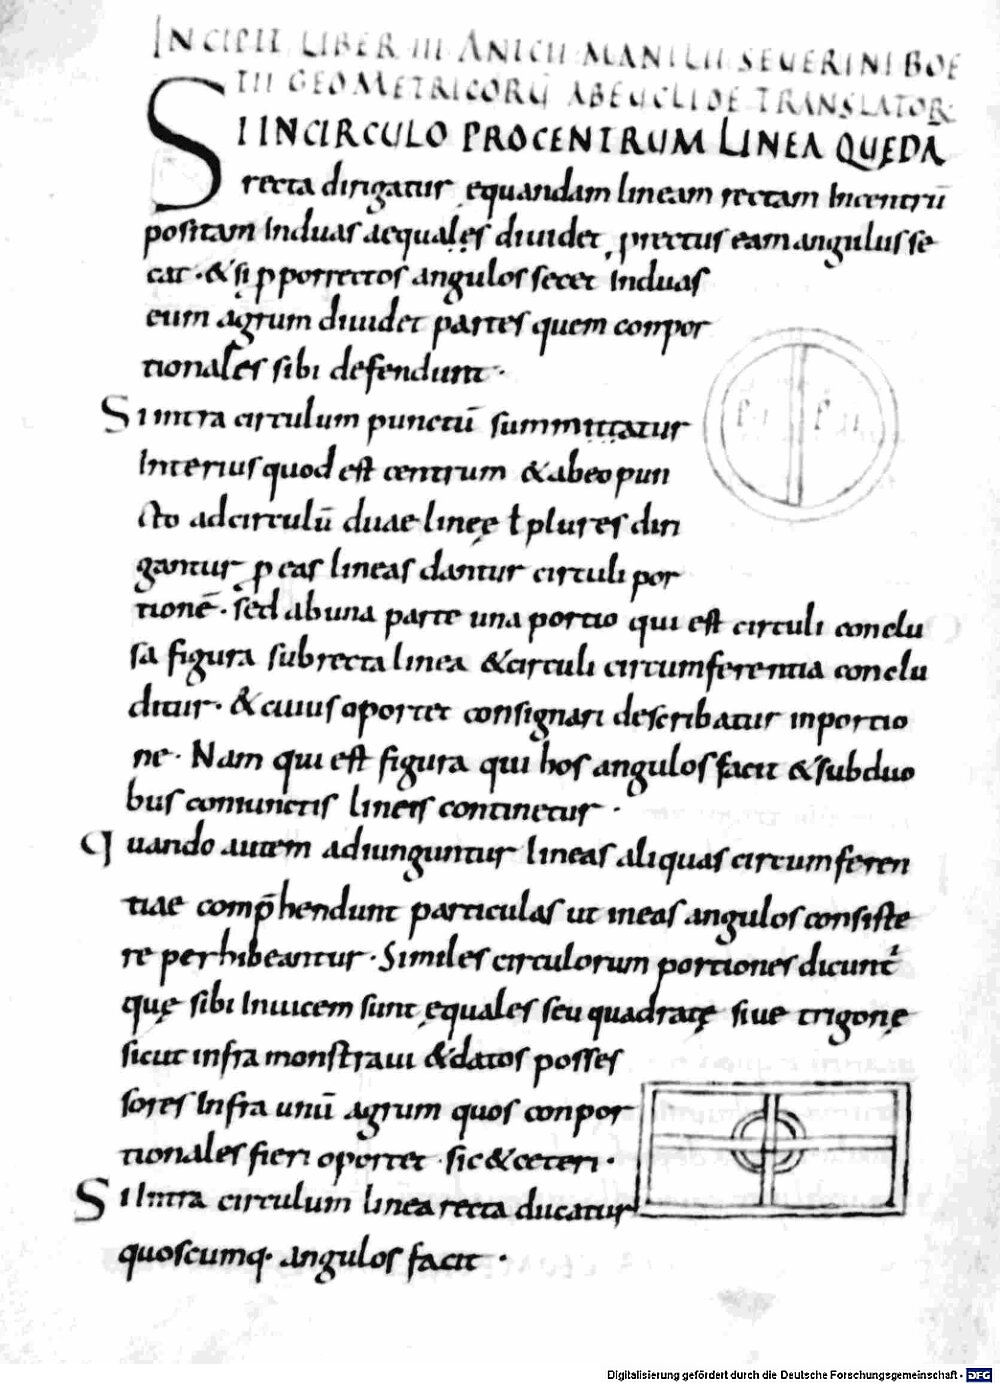 INCIPIT LIBER III ANICII MANILII SEUERINI BOE
TII GEOMETRICORŪ AB EUCLIDE TRANSLATOR
SI IN CIRCULO PRO CENTRUM LINEA QUEDĀ
recta dirigatur ęquandam lineam rectam Incentrū
positam Induas aequalęs diuidet, prectus eam angulus se
cat · & si ꝑ porrectos angulos secet Induas
eum agrum diuidet partes quem conpor
tionales sibi defendunt ·
Si intra circulum punctū summittatur
Interius quod est centrum & ab eo pun
cto ad circulū duae lineę ł plures diri
gantur ꝑ eas lineas dantur circuli por
tionē · sed ab una parte una portio qui est circuli conclu
sa figura sub recta linea & circuli circumferentia conclu
ditur · & cuius oportet consignari describatur in portio
ne · Nam qui est figura qui hos angulos facit & sub duo
bus coniunctis lineis continetur ·
Quando autem adiunguntur lineas aliquas circumferen
tiae comp̄hendunt particulas ut in eas angulos consiste
re perhibeantur · Similes circulorum portiones dicunt᷑
quę sibi Inuicem sunt ęquales seu quadratę siue trigonę
sicut infra monstraui & datos posses
sores Infra unū agrum quos conpor
tionales fieri oportet · sic & ceteri ·
Si Intra circulum linea recta ducatur
quoscumq· angulos facit ·
Digitalisierung gefördert durch die Deutsche Forschungsgemeinschaft - DFG